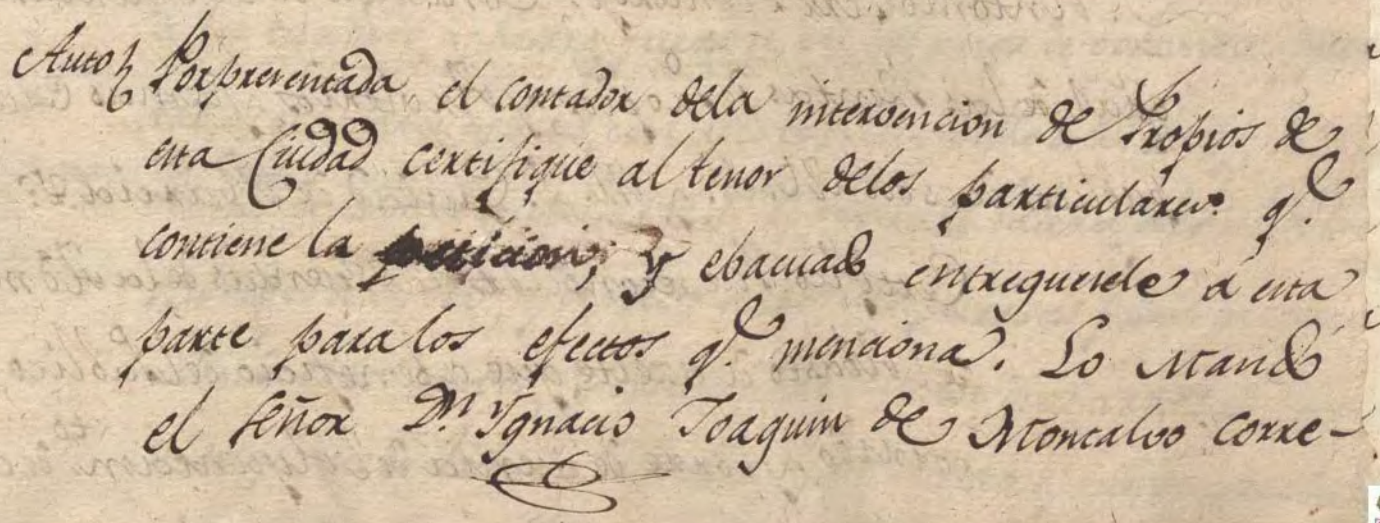 Auto Por presentada, el contador dela intervencion de Propios de
esta Ciudad certifique al tenor delos particulares qe.
contiene la peticion, y ebacuado entreguesele a esta
parte para los efectos qe. menciona. Lo Mando
el señor Dn. Ygnacio Joaquin de Montalvo corre-